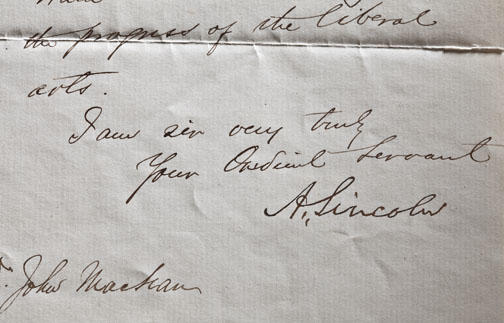 the progress of the liberal
arts.
I am sir very truly
Your Obedient Servant
A. Lincoln
John Maclean